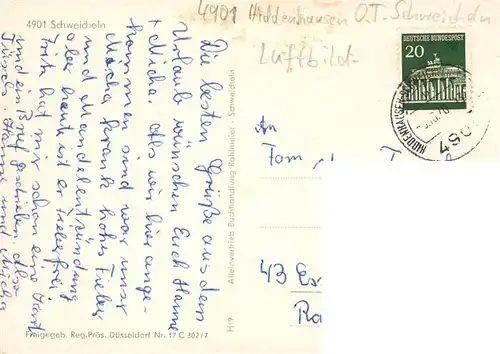 4901 Hiddenhausen O.T. Schweicheln
4901 Schweicheln
Luftbild
DEUTSCHE BUNDESPOST
20
HIDDENHAUSEN
Die besten Grüße aus dem
Urlaub wünschen Euch Hanne
+ Micha. Als wir hier ange-
kommen sind war unser
Micha krank hohes Fieber
und Mandelentzündung
aber heute ist er fieberfrei.
Fritz hat mir schon eine Karte
und ein Brief geschrieben. Also
Tschüß Hanne und Micha
An
Fam
43 Es
Alleinvertrieb Buchhandlung Rahlmeier · Schweicheln
H 9
Freigegeb. Reg.Präs. Düsseldorf Nr. 17 C 302/7